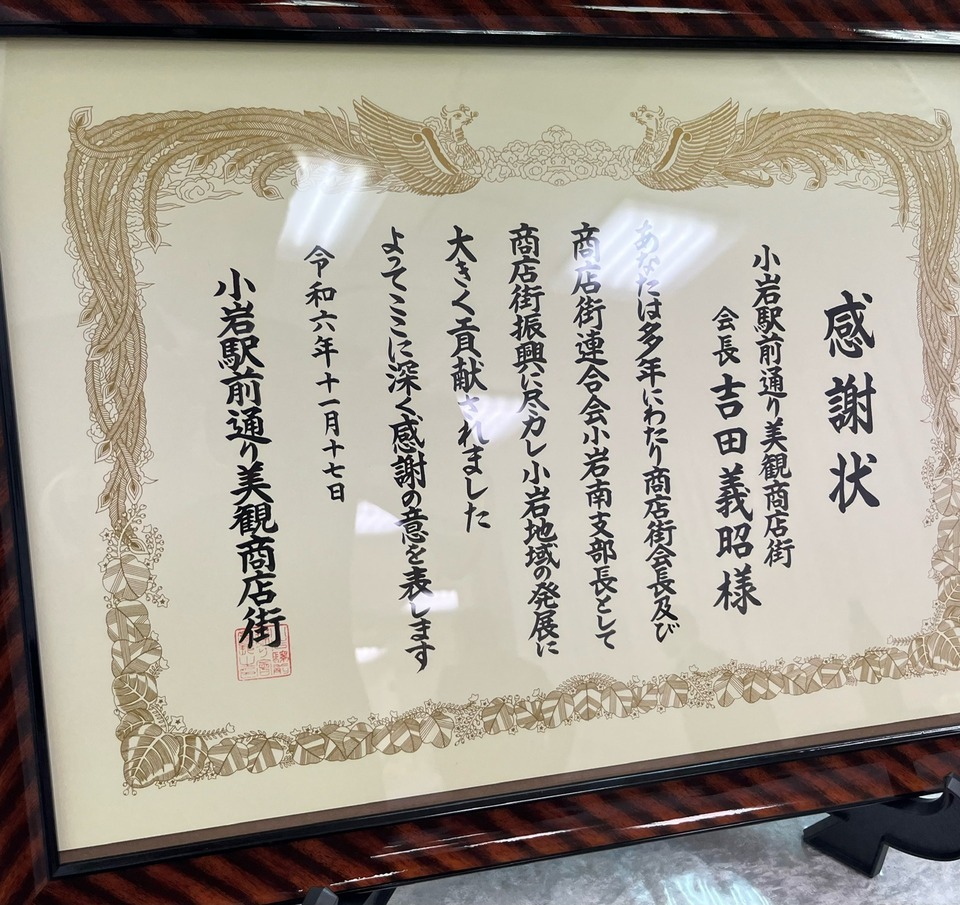 感謝状
小岩駅前通り美観商店街
会長 吉田義昭様
あなたは多年にわたり商店街会長及び
商店街連合会小岩南支部長として
商店街振興に尽力し小岩地域の発展に
大きく貢献されました
よってここに深く感謝の意を表します
令和六年十一月十七日
小岩駅前通り美観商店街